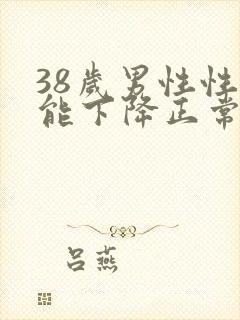 38岁男性性
能下降正常
吕燕